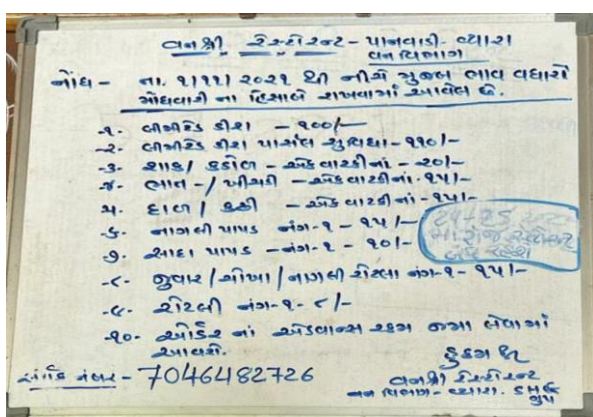 વનશ્રી રેસ્ટોરન્ટ - પાનવાડી - વ્યારા
વન વિભાગ
નોંધ - તા. ૧/૧૧/૨૦૨૧ થી નીચે મુજબ ભાવ વધારો
મોંઘવારી ના હિસાબે રાખવામાં આવેલ છે.
-૧- લીમીટેડ ડીશ - ૧૦૦/-
-૨- લીમીટેડ ડીશ પાર્સલ સુવિધા - ૧૧૦/-
-૩- શાક/ કઠોળ - એક વાટકીનાં - ૨૦/-
-૪- ભાત -/ ખીચડી - એક વાટકીનાં - ૧૫/-
-૫- દાળ / કઢી - એક વાટકીનાં - ૧૫/-
-૬- નાગલી પાપડ નંગ-૧ - ૧૫/-
-૭- સાદા પાપડ - નંગ-૧ - ૧૦/-
-૮- જુવાર / ચોખા / નાગલી રોટલા નંગ-૧ - ૧૫/-
-૯- રોટલી નંગ-૧ - ૮/-
-૧૦- ઓર્ડર નાં એડવાન્સ રકમ જમા લેવામાં
આવશે.
હુકમ થી
સંપર્ક નંબર - 7046482726
વનશ્રી રેસ્ટોરન્ટ
વન વિભાગ - વ્યારા.